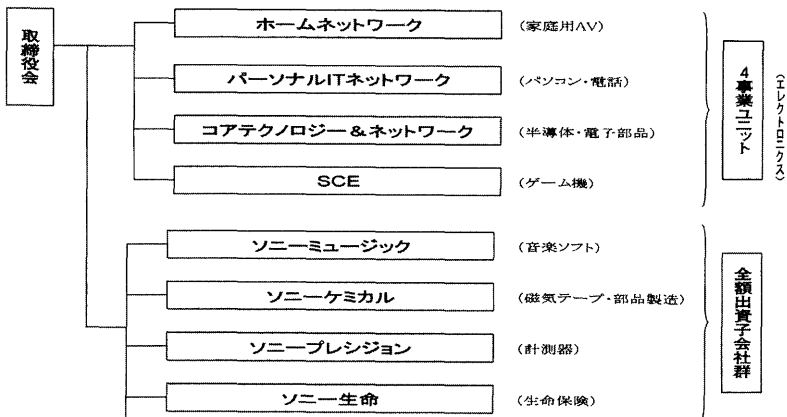 取締役会
ホームネットワーク
(家庭用AV)
パーソナルITネットワーク
(パソコン・電話)
コアテクノロジー＆ネットワーク
(半導体・電子部品)
SCE
(ゲーム機)
4事業ユニット
(エレクトロニクス)
ソニーミュージック
(音楽ソフト)
ソニーケミカル
(磁気テープ・部品製造)
ソニープレシジョン
(計測器)
ソニー生命
(生命保険)
全額出資子会社群